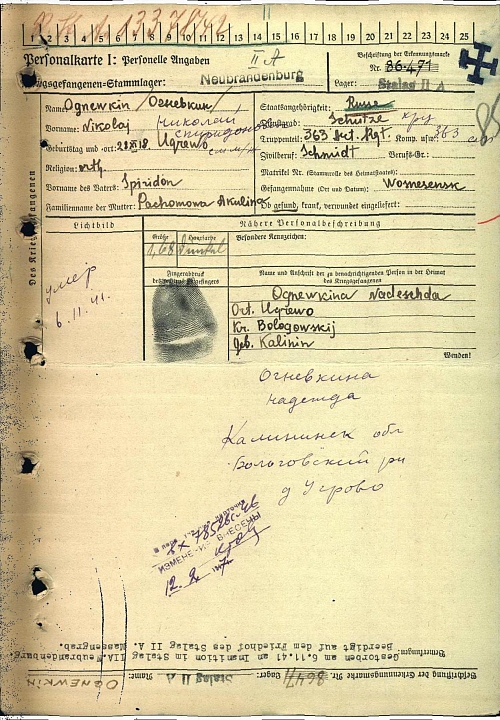 1 2 3 4 5 6 7 8 9 10 11 12 13 14 15 16 17 18 19 20 21 22 23 24 25
Personalkarte I: Personelle Angaben
II A
Beschriftung der Erkennungsmarke
Nr. 86471
Kriegsgefangenen-Stammlager: Neubrandenburg
Lager: Stalag II A
Des Kriegsgefangenen
Name: Ognewkin / Огневкин
Staatsangehörigkeit: Russe
Vorname: Nikolaj Николай
Dienstgrad: Schütze
Спиридонович
Geburtstag und -ort: Ugrewo
Truppenteil: 363 Art. Rgt. Komp. usw.: 363
Religion: orth.
Zivilberuf: Schmidt Berufs-Gr.:
Matrikel Nr. (Stammrolle des Heimatstaates):
Vorname des Vaters: Spiridon
Gefangennahme (Ort und Datum): Womesensk
Familienname der Mutter: Pachomowa Akulina
Ob gesund, krank, verwundet eingeliefert:
Lichtbild
Nähere Personalbeschreibung
Größe Haarfarbe Besondere Kennzeichen:
1,68 dunkel
умер
6.11.41.
Fingerabdruck
Name und Anschrift der zu benachrichtigenden Person in der Heimat
des Kriegsgefangenen
Ognewkina Nadeschda
Ort. Ugrewo
Kr. Bologowskij
Geb. Kalinin
Wenden!
Огневкина
надежда
Калининск обл
Бологовский рн
д Угрово
ИЗМЕНЕНИЯ ВНЕСЕНЫ
Bemerkungen:
Gestorben am 6.11.41 an Inanition im Stalag IIA.Neubrandenburg.
Beerdigt auf dem Friedhof des Stalag II A Massengrab.
Beschriftung der Erkennungsmarke Nr. 86471 Lager: Stalag II A Name: OGNEWKIN